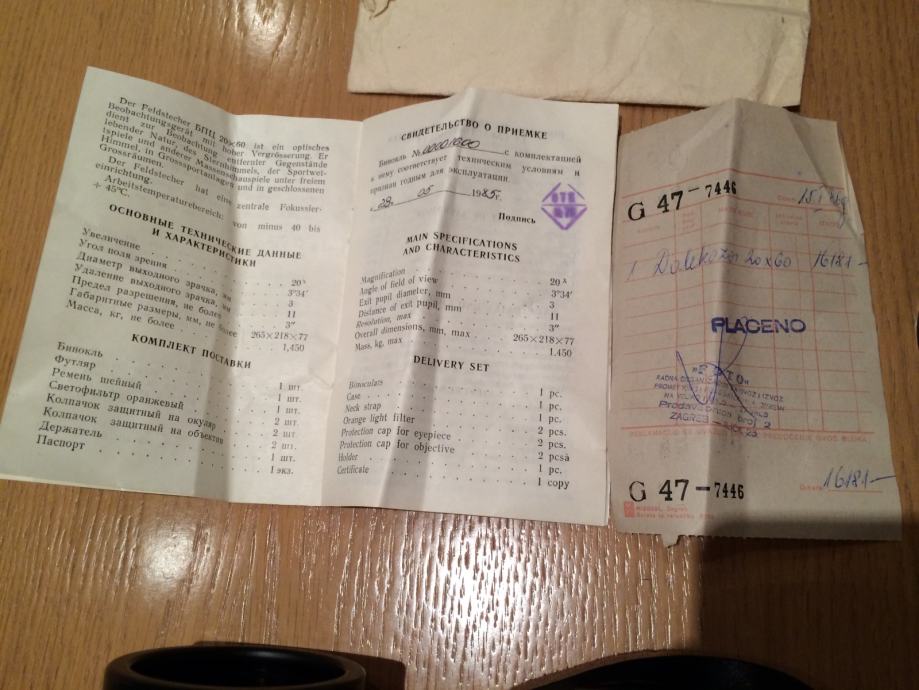 Der Feldstecher БПЦ 20×60 ist ein optisches
Beobachtungsgerät mit hoher Vergrösserung. Er
dient zur Beobachtung entfernter Gegenstände
lebender Natur, des Sternhimmels, der Sportwet-
tspiele und anderer Massenschauspiele unter freiem
Himmel, in Grossportanlagen und in geschlossenen
Grossräumen.
Der Feldstecher hat eine zentrale Fokussier-
einrichtung.
Arbeitstemperaturebereich: von minus 40 bis
+ 45°C.
ОСНОВНЫЕ ТЕХНИЧЕСКИЕ ДАННЫЕ
И ХАРАКТЕРИСТИКИ
Увеличение 20ˣ
Угол поля зрения 3°34′
Диаметр выходного зрачка, мм 3
Удаление выходного зрачка, мм 11
Предел разрешения, не более 3″
Габаритные размеры, мм, не более 265×218×77
Масса, кг, не более 1,450
КОМПЛЕКТ ПОСТАВКИ
Бинокль 1 шт.
Футляр 1 шт.
Ремень шейный 1 шт.
Светофильтр оранжевый 2 шт.
Колпачок защитный на окуляр 2 шт.
Колпачок защитный на объектив 2 шт.
Держатель 1 шт.
Паспорт 1 экз.
СВИДЕТЕЛЬСТВО О ПРИЕМКЕ
Бинокль № с комплектацией
к нему соответствует техническим условиям и
признан годным для эксплуатации.
« 28 » 05 1985г.
Подпись
MAIN SPECIFICATIONS
AND CHARACTERISTICS
Magnification 20ˣ
Angle of field of view 3°34′
Exit pupil diameter, mm 3
Distance of exit pupil, mm 11
Resolution, max 3″
Overall dimensions, mm, max 265×218×77
Mass, kg, max 1,450
DELIVERY SET
Binoculars 1 pc.
Case 1 pc.
Neck strap 1 pc.
Orange light filter 2 pcs.
Protection cap for eyepiece 2 pcs.
Protection cap for objective 2 pcsà
Holder 1 pc.
Certificate 1 copy
G 47-7446
1 Dalekozor 20x60 16181-
PLAĆENO
ZAGREB
G 47-7446
16181-